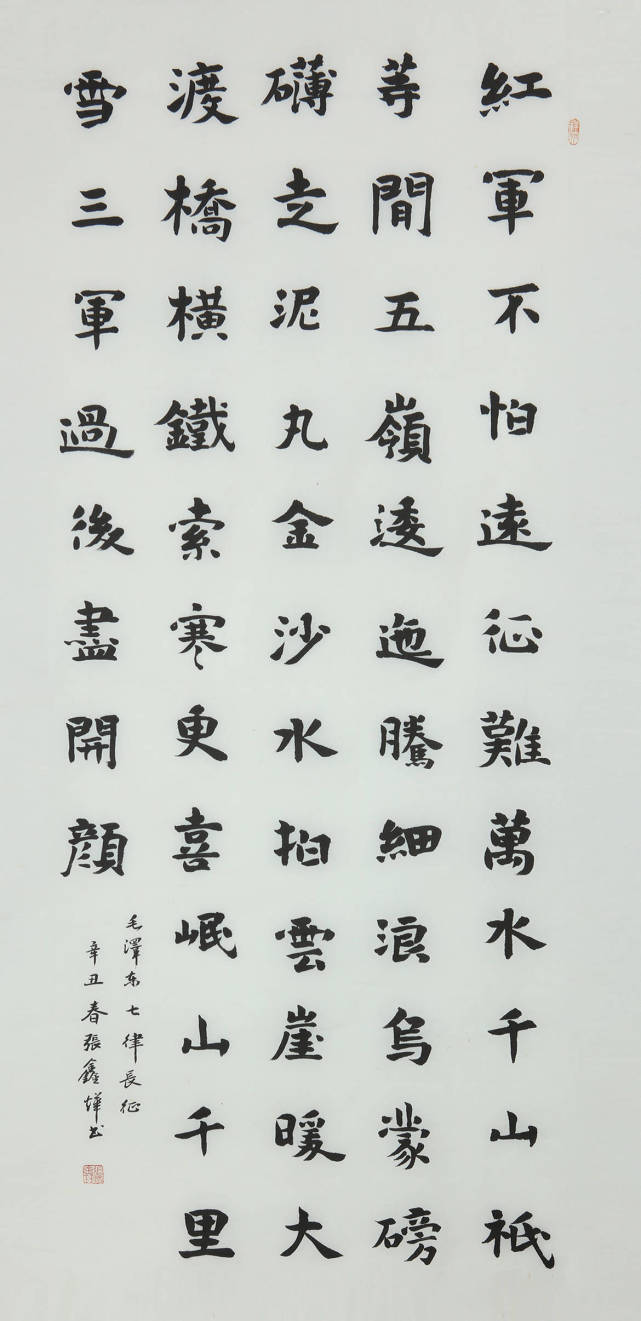 紅軍不怕遠征難萬水千山祇
等閒五嶺逶迤騰細浪烏蒙磅
礴走泥丸金沙水拍雲崖暖大
渡橋橫鐵索寒更喜岷山千里
雪三軍過後盡開顏
毛澤东七律長征
辛丑春張鑫燁书